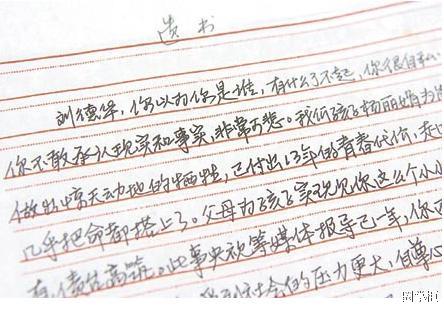 遗书
刘德华，你以为你是谁，有什么了不起，你很自私
你不敢承认现实和事实，非常可悲。我们孩子杨丽娟为你
做出惊天动地的牺牲，已付出13年的青春代价，
几乎把命都搭上了。父母为孩子实现见你这么个小小
有，债台高筑。此事央视等媒体报导已一年，你
社会的压力更大，自尊心